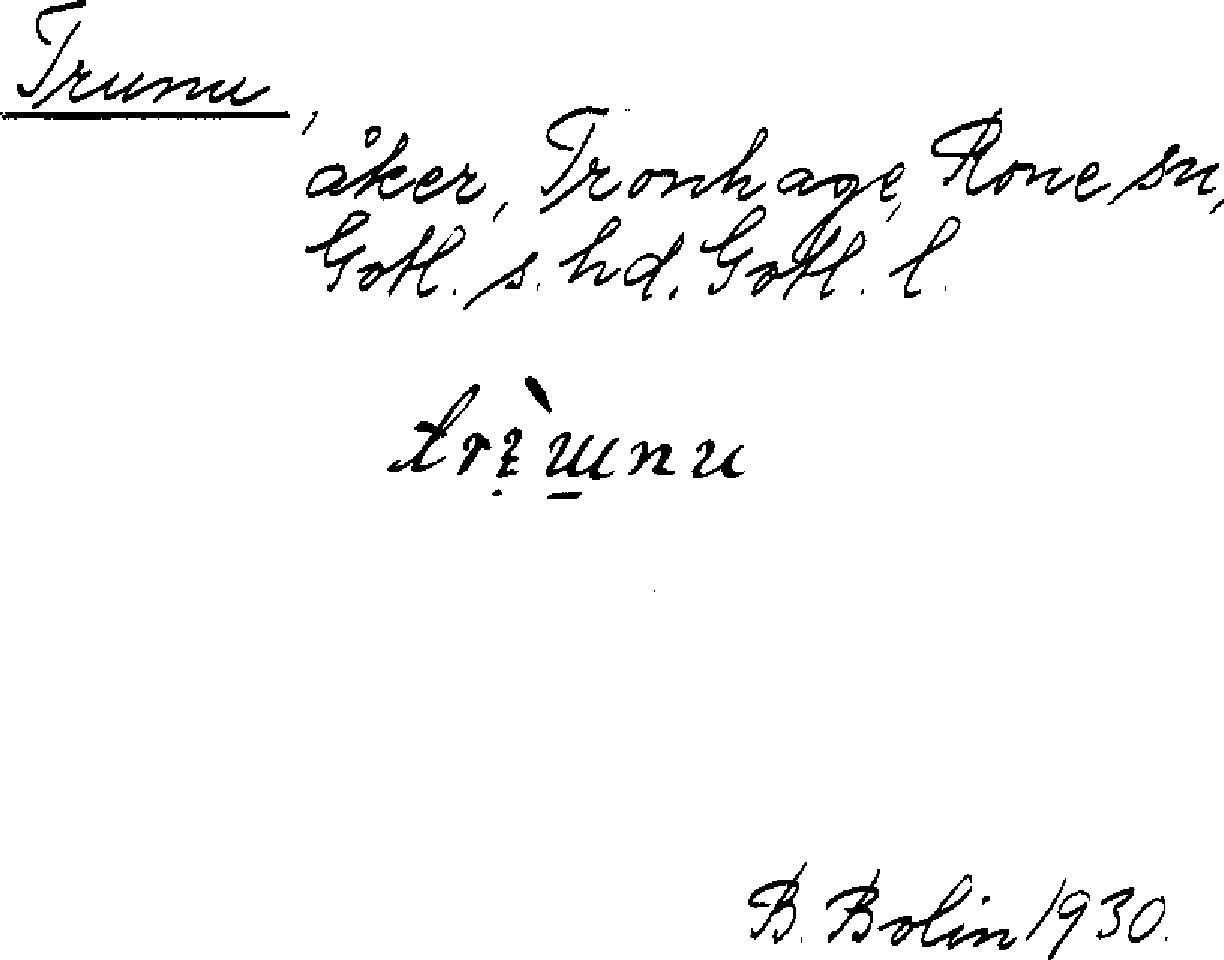 Trunu,
åker, Tronhage, Rone sn,
Gotl. s. hd. Gotl. l.
B. Bolin 1930.